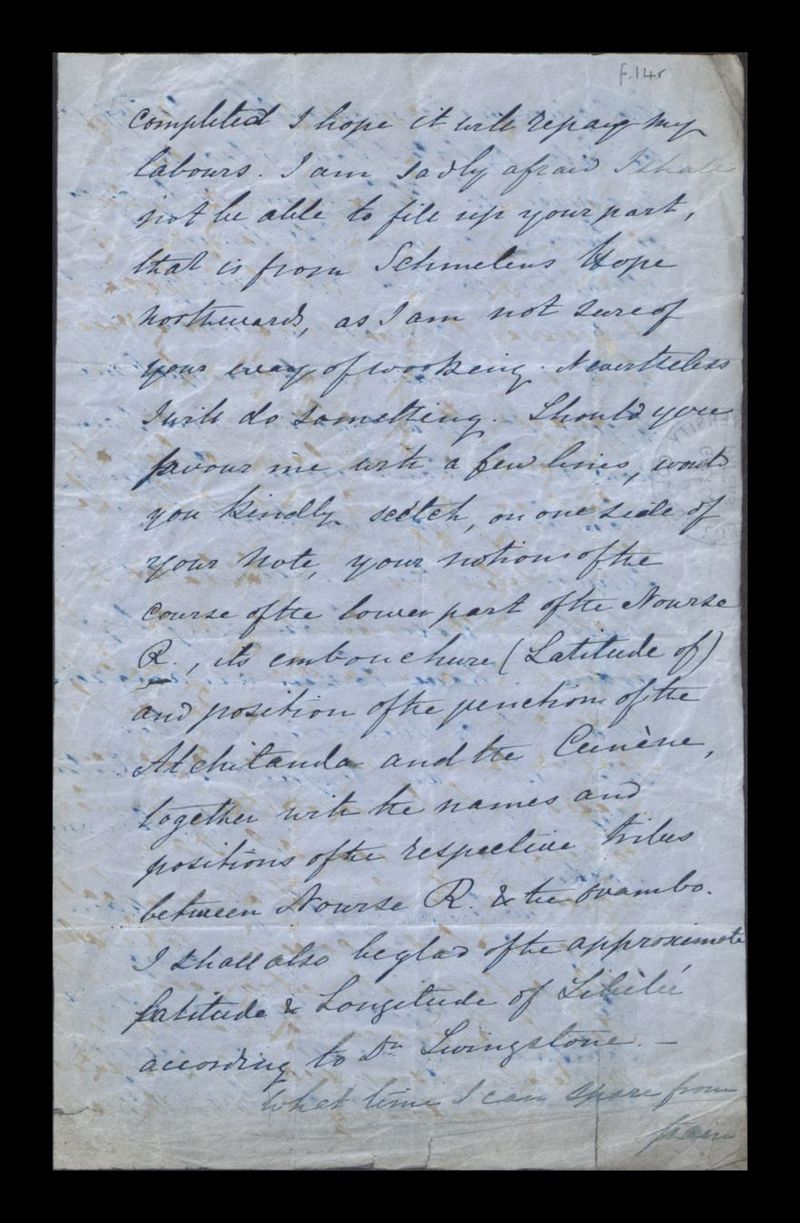 f.14r
completed I hope it will repay my
labours. I am sadly afraid I shall
not be able to fill up your part,
that is from Schmelens Hope
northwards, as I am not sure of
your way of working. Nevertheless
I will do something. Should you
favour me with a few lines, would
you kindly scetch, on one side of
your note, your notions of the
course of the lower part of the Nourse
R., its embouchure (Latitude of)
and position of the junction of the
Atchitanda and the Cunène,
together with the names and
positions of the respective tribes
between Nourse R. & the Ovambo.
I shall also be glad of the approximate
Latitude & Longitude of Libèbé
according to Dr Livingstone. —
What time I can spare from